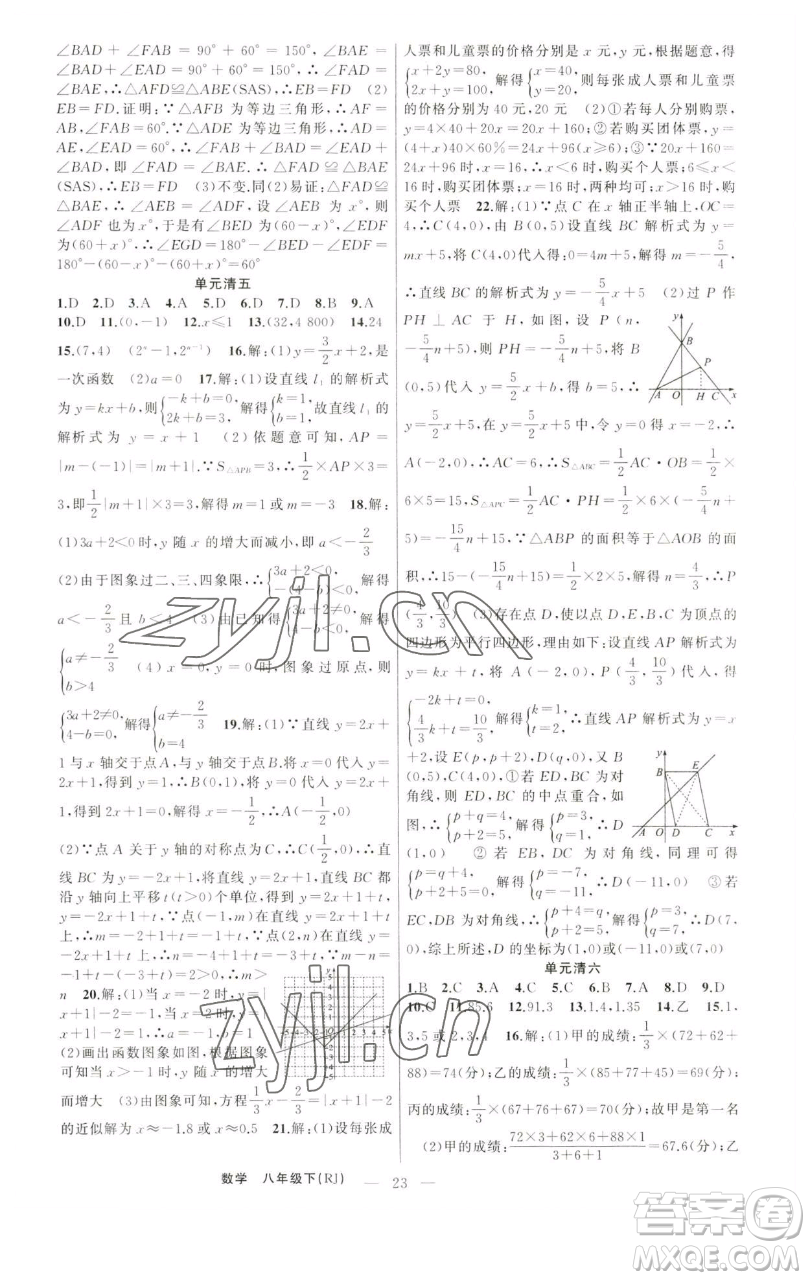 ∠BAD + ∠FAB = 90° + 60° = 150°, ∠BAE =
∠BAD + ∠EAD = 90° + 60° = 150°, ∴ ∠FAD =
∠BAE, ∴ △AFD≌△ABE(SAS), ∴ EB=FD (2)
EB=FD. 证明: ∵ △AFB 为等边三角形, ∴ AF =
AB, ∠FAB = 60°. ∵ △ADE 为等边三角形, ∴ AD =
AE, ∠EAD = 60°, ∴ ∠FAB + ∠BAD = ∠EAD +
∠BAD, 即 ∠FAD = ∠BAE, ∴ △FAD ≌ △BAE
(SAS), ∴ EB=FD (3)不变. 同(2)易证: △FAD≌
△BAE, ∴ ∠AEB = ∠ADF, 设 ∠AEB 为 x°, 则
∠ADF 也为 x°, 于是有 ∠BED 为(60-x)°, ∠EDF
为(60+x)°, ∴ ∠EGD = 180° - ∠BED - ∠EDF =
180°-(60-x)°-(60+x)°=60°
单元清五
1.D 2.D 3.A 4.A 5.D 6.D 7.B 8.B 9.A
10.D 11.(0,-1) 12.x≤1 13.(32,4 800) 14.24
15.(7,4) (2ⁿ-1,2ⁿ⁻¹) 16.解:(1)y=3/2x+2,是
一次函数 (2)a=0 17.解:(1)设直线 l₁ 的解析式
为 y=kx+b,则{-k+b=0, 2k+b=3, 解得{k=1, b=1, 故直线 l₁ 的
解析式为 y = x + 1 (2)依题意可知, AP =
|m-(-1)|=|m+1|. ∵S△APB=3, ∴1/2×AP×3=
3,即1/2|m+1|×3=3,解得 m=1 或 m=-3 18.解:
(1)3a+2<0 时,y 随 x 的增大而减小,即 a<-2/3
(2)由于图象过二、三、四象限, ∴{3a+2<0, 4-b<0, 解得
a<-2/3且 b (3)由已知得 解得
{a≠-2/3 b>4 (4) x = 0, y = 0 时,图象过原点,则
{3a+2≠0, 4-b=0, 解得{a≠-2/3 b=4 19.解:(1)∵直线 y=2x+
1 与 x 轴交于点 A,与 y 轴交于点 B,将 x=0 代入 y=
2x+1,得到 y=1, ∴B(0,1),将 y=0 代入 y=2x+
1,得到 2x+1=0,解得 x=-1/2, ∴A(-1/2,0)
(2)∵点 A 关于 y 轴的对称点为 C, ∴C(1/2,0), ∴直
线 BC 为 y=-2x+1,将 y=2x+1,y=-2x+1 都
沿 y 轴向上平移 t(t>0)个单位,得到 y=2x+1+t,
y=-2x+1+t, ∵点(-1,m)在直线 y=2x+1+t
上, ∴m=-2+1+t=t-1, ∵点 在 y=-2x+1+t
上, ∴n=-2+1+t=-1+t,
-1+t, ∴m>
n 20.解:(1)当 x=-2 时,
|x+1|-1=-2x-2-1
x+1|-2=x-1, ∴a=-1,b=
(2)画出函数图象如图,根据图象
可知:当 x>-1 时,y 随 x 的增大
而增大 (3)由图象可知,方程1/3x=|x+1|-2
的近似解为 x≈-1.8 或 x≈0.5 21.解:(1)设每张成
人票和儿童票的价格分别是 x 元,y 元,根据题意,得
{x+2y=80, 2x+y=100, 解得{x=40, y=20, 则每张成人票和儿童票
的价格分别为 40 元,20 元 (2)①若每人分别购票,
y=4×40+20x=20x+160;②若购买团体票,
y=(4+x)×40×60%=24x+96(x≥6);③∵20x+160=
24x+96 时,x=16, ∴x>16 时,购买个人票;6≤x<
16 时,购买团体票;x=16 时,两种均可;x<6 时,
购买个人票 22.解:(1)∵点 C 在 x 轴正半轴上,OC=
4, ∴C(4,0),由 B(0,5)设直线 BC 解析式为 y=
mx+5,将 C(4,0)代入得:0=4m+5,解得 m=-5/4,
∴直线 BC 的解析式为 y=-5/4x+5 (2)过 P 作
PH ⊥ AC 于 H, 如图, 设 P(n,
-5/4n+5),则 PH=-5/4n+5,将 B
(0,5)代入 y=5/2x+b 得:b=5, ∴
y=5/2x+5,在 y=5/2x+5 中,令 y=0 得 x=-2, ∴
A(-2,0), ∴AC=6, ∴S△ABC=1/2AC·OB=1/2×
6×5=15,S△APC=1/2AC·PH=1/2×6×(-5/4n+
5)=-15/4n+15, ∵△ABP 的面积等于△AOB 的面
积, ∴15-(-15/4n+15)=1/2×2×5,解得 n=4/3, ∴P
(4/3,10/3) (3)存在点 D,使以点 D,E,B,C 为顶点的
四边形为平行四边形,理由如下:设直线 AP 解析式为
y=kx+t,将 A(-2,0),P(4/3,10/3)代入,得
{-2k+t=0, 4/3k+t=10/3, 解得{k=1, t=2, ∴直线 AP 解析式为 y=x
+2,设 E(p,p+2),D(q,0),又 B
(0,5),C(4,0),①若 DE,BC 为对
角线,则 DE,BC 的中点重合,如
图, ∴{p+q=4, p+2=5, 解得{p=3, q=1, ∴D
(1,0) ②若 EB,DC 为对角线,同理可得
{p=q+4, p+2+5=0, 解得{p=-7, q=-11, ∴D(-11,0) ③若
EC,DB 为对角线, ∴{p+4=q, p+2=5, 解得{p=3, q=7, ∴D(7,
0),综上所述,D 的坐标为(1,0)或(-11,0)或(7,0)
单元清六
1.B 2.C 3.A 4.C 5.A 6.D 7.B 8.D 9.D
10.C 11.85.6 12.91.3 13.1.4,1.35 14.乙 15.1,
3,5 或 2,3,4 16.解:(1)甲的成绩:1/3×(72+62+
88)=74(分);乙的成绩:1/3×(85+77+45)=69(分);
丙的成绩:1/3×(67+76+67)=70(分);故甲是第一名
(2)甲的成绩:(72×3+62×6+88×1)/(3+6+1)=67.6(分);乙
数学 八年级下(RJ) — 23 —
zyjl.cn
zyjl.cn
答案圈
MXQE.COM